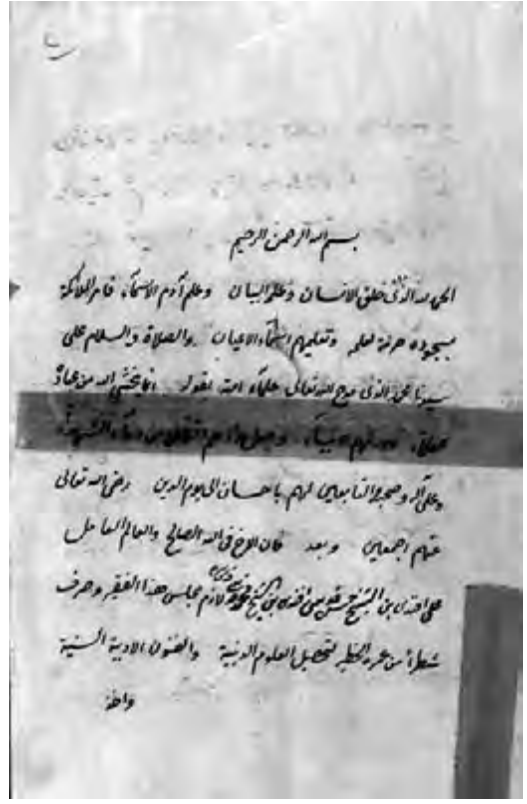 بسم الله الرحمن الرحيم
الحمد لله الذى خلق الانسان وعلمه البيان وعلم آدم الاسماء فامر الملائكة
بسجوده حرمة لعلمه وتعليمهم اسماء الاعيان والصلاة والسلام على
سيدنا محمد الذى مدح الله تعالى علماء امته بقوله انما يخشى الله من عباده
العلماء الانبياء وجعل مدادهم من دماء الشهداء
وعلى آله وصحبه والتابعين لهم باحسان الى يوم الدين رضى الله تعالى
عنهم اجمعين وبعد فان الاخ فى الله الصالح والعالم العامل
على افندى ابن الشيخ افندى ابن الشيخ لازم مجالس هذا الفقير وصرف
شطرا من عمره لتحصيل العلوم الدينية والفنون الادبية السنية